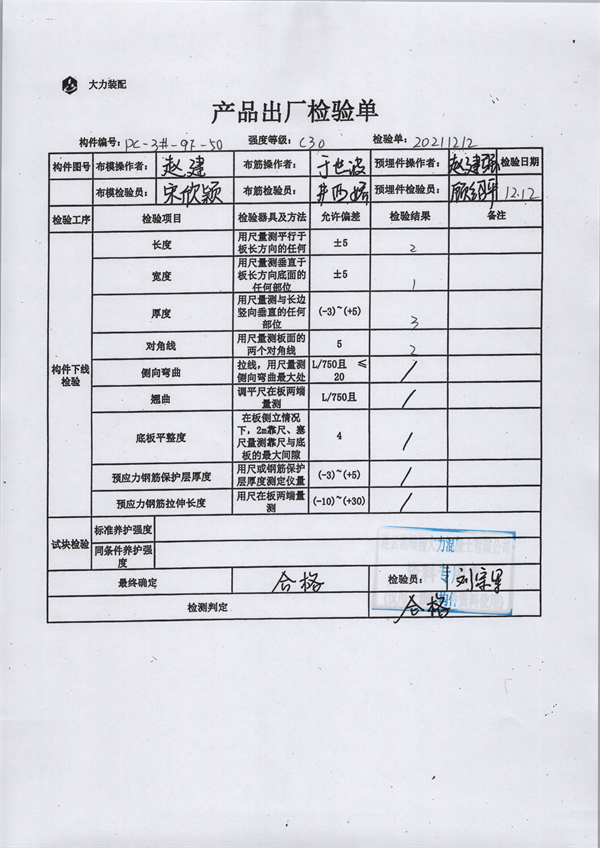 大力装配
产品出厂检验单
构件编号：PC-3#-9F-50 强度等级：C30 检验单：20211212
构件图号 布模操作者： 赵建 布筋操作者： 于世波 预埋件操作者： 赵建强 检验日期
布模检验员： 宋欣颖 布筋检验员： 预埋件检验员： 12.12
检验工序 检验项目 检验器具及方法 允许偏差 检验结果 备注
构件下线检验
长度 用尺量测平行于板长方向的任何 ±5 2
宽度 用尺量测垂直于板长方向底面的任何部位 ±5 1
厚度 用尺量测与长边竖向垂直的任何部位 (-3)~(+5) 3
对角线 用尺量测板面的两个对角线 5 2
侧向弯曲 拉线，用尺量测侧向弯曲最大处 L/750且 ≤20 /
翘曲 调平尺在板两端量测 L/750且 /
底板平整度 在板侧立情况下，2m靠尺、塞尺量测靠尺与底板的最大间隙 4 /
预应力钢筋保护层厚度 用尺或钢筋保护层厚度测定仪量 (-3)~(+5) /
预应力钢筋拉伸长度 用尺在板两端量测 (-10)~(+30) /
试块检验 标准养护强度
同条件养护强度
最终确定 合格 检验员： 刘宗星
检测判定 合格